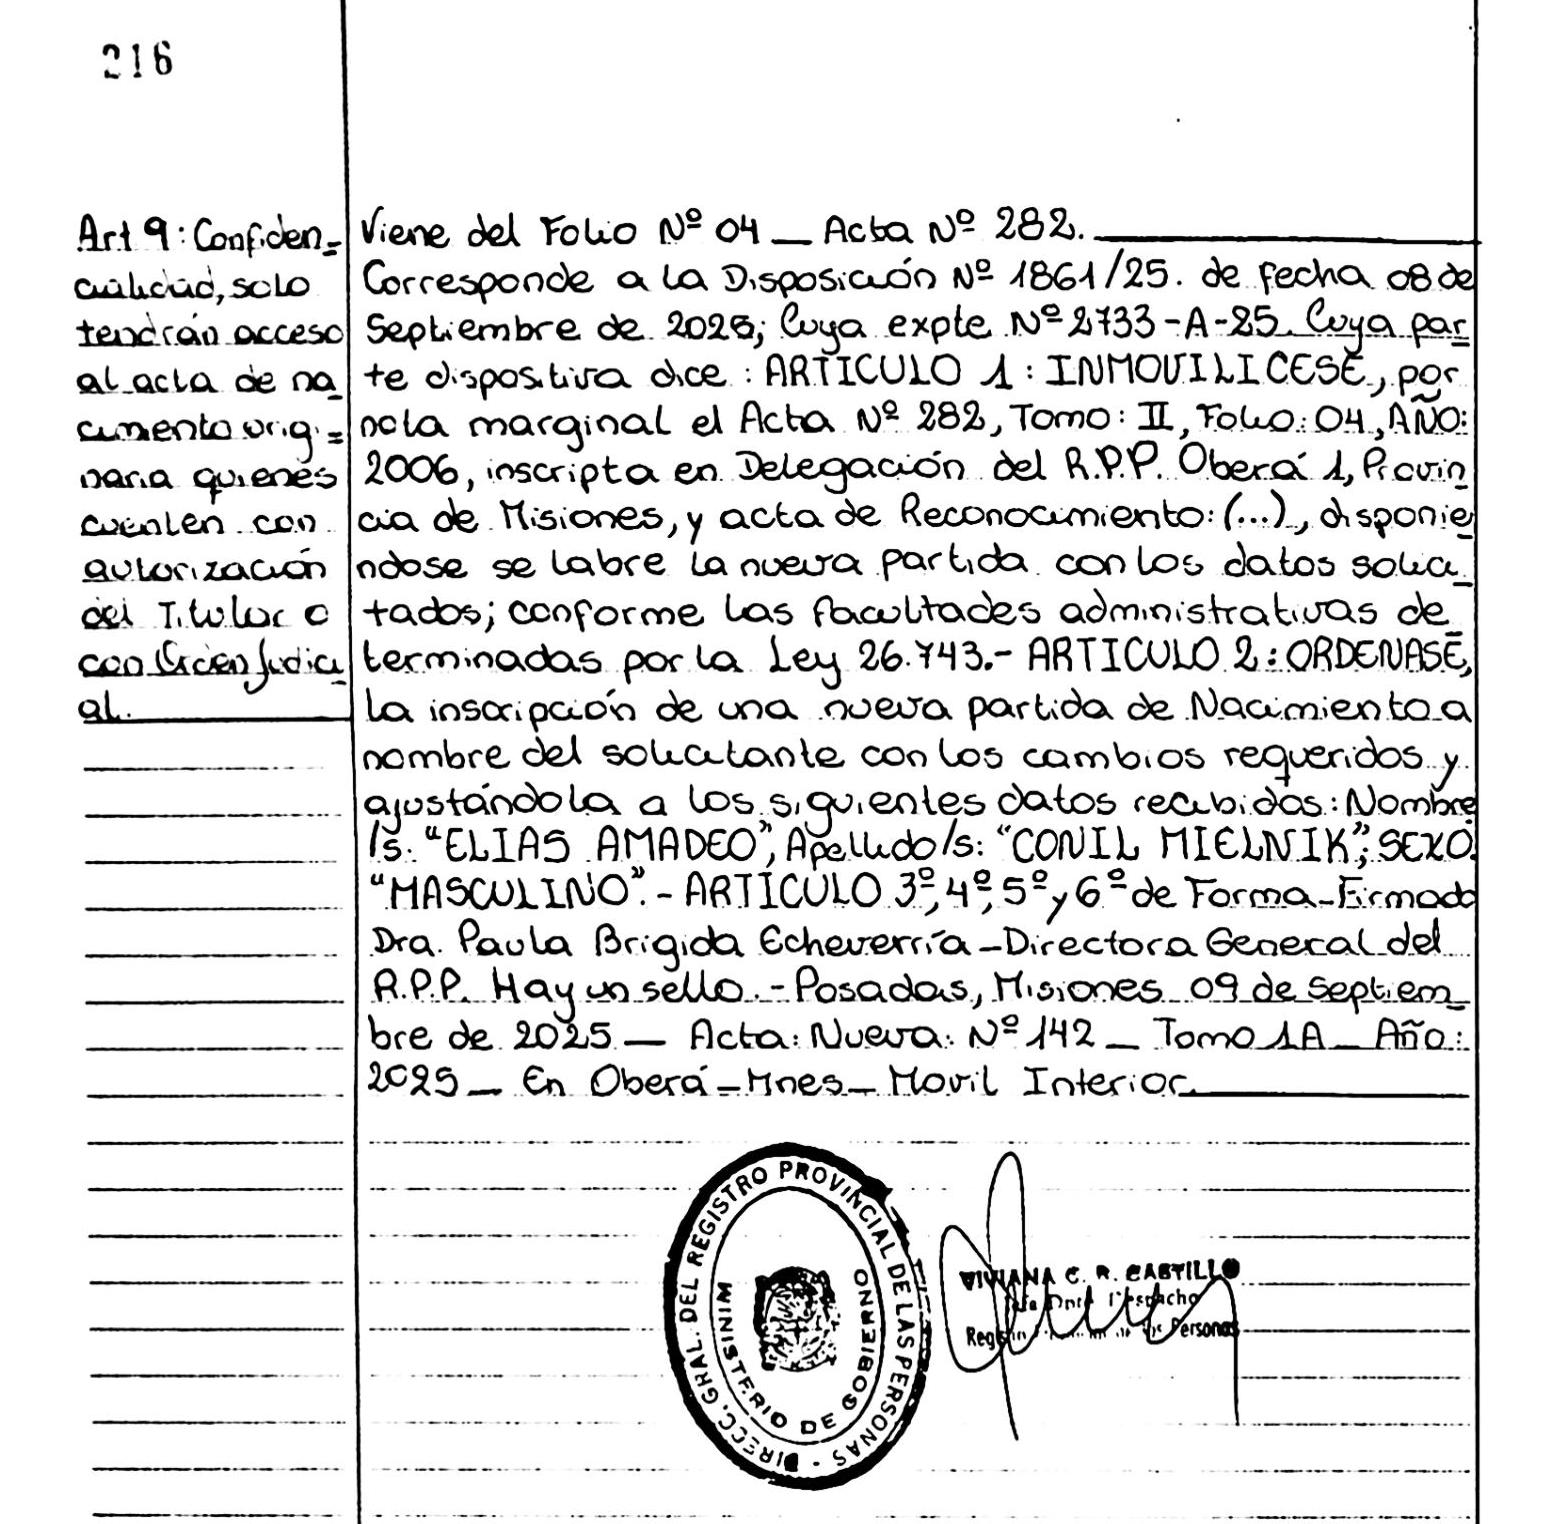 216
Art 9: Confiden=
cialidad, solo
tendrán acceso
al acta de na_
cimiento origi=
naria quienes
cuenten con
autorización
del Titular o
con Orden Judici_
al.
Viene del Folio Nº 04 _ Acta Nº 282.
Corresponde a la Disposición Nº 1861/25. de fecha 08 de
Septiembre de 2025; Cuya expte Nº 2733-A-25. Cuya par_
te dispositiva dice: ARTICULO 1: INMOVILICESE, por
nota marginal el Acta Nº 282, Tomo: II, Folio: 04, AÑO:
2006, inscripta en Delegación del R.P.P. Oberá 1, Provin_
cia de Misiones, y acta de Reconocimiento: (...), disponie_
ndose se labre la nueva partida con los datos solici_
tados; conforme las facultades administrativas de_
terminadas por la Ley 26.743.- ARTICULO 2: ORDENASE,
la inscripción de una nueva partida de Nacimiento a
nombre del solicitante con los cambios requeridos y
ajustándola a los siguientes datos recibidos: Nombre
/s: "ELIAS AMADEO", Apellido/s: "CONIL MIELNIK"; SEXO:
"MASCULINO".- ARTÍCULO 3º, 4º, 5º y 6º de Forma-Firmado
Dra. Paula Brigida Echeverría-Directora General del
R.P.P. Hay un sello.-Posadas, Misiones 09 de Septiem_
bre de 2025 — Acta: Nueva: Nº 142 _ Tomo 1A _ Año:
2025 _ En Oberá-Mnes-Movil Interior.
DIRECC. GRAL. DEL REGISTRO PROVINCIAL DE LAS PERSONAS -
MINISTERIO DE GOBIERNO
VIVIANA C. R. CASTILLO
Despacho
Personas